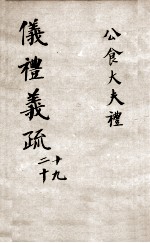 公食大夫禮
儀禮義疏
十九
二十